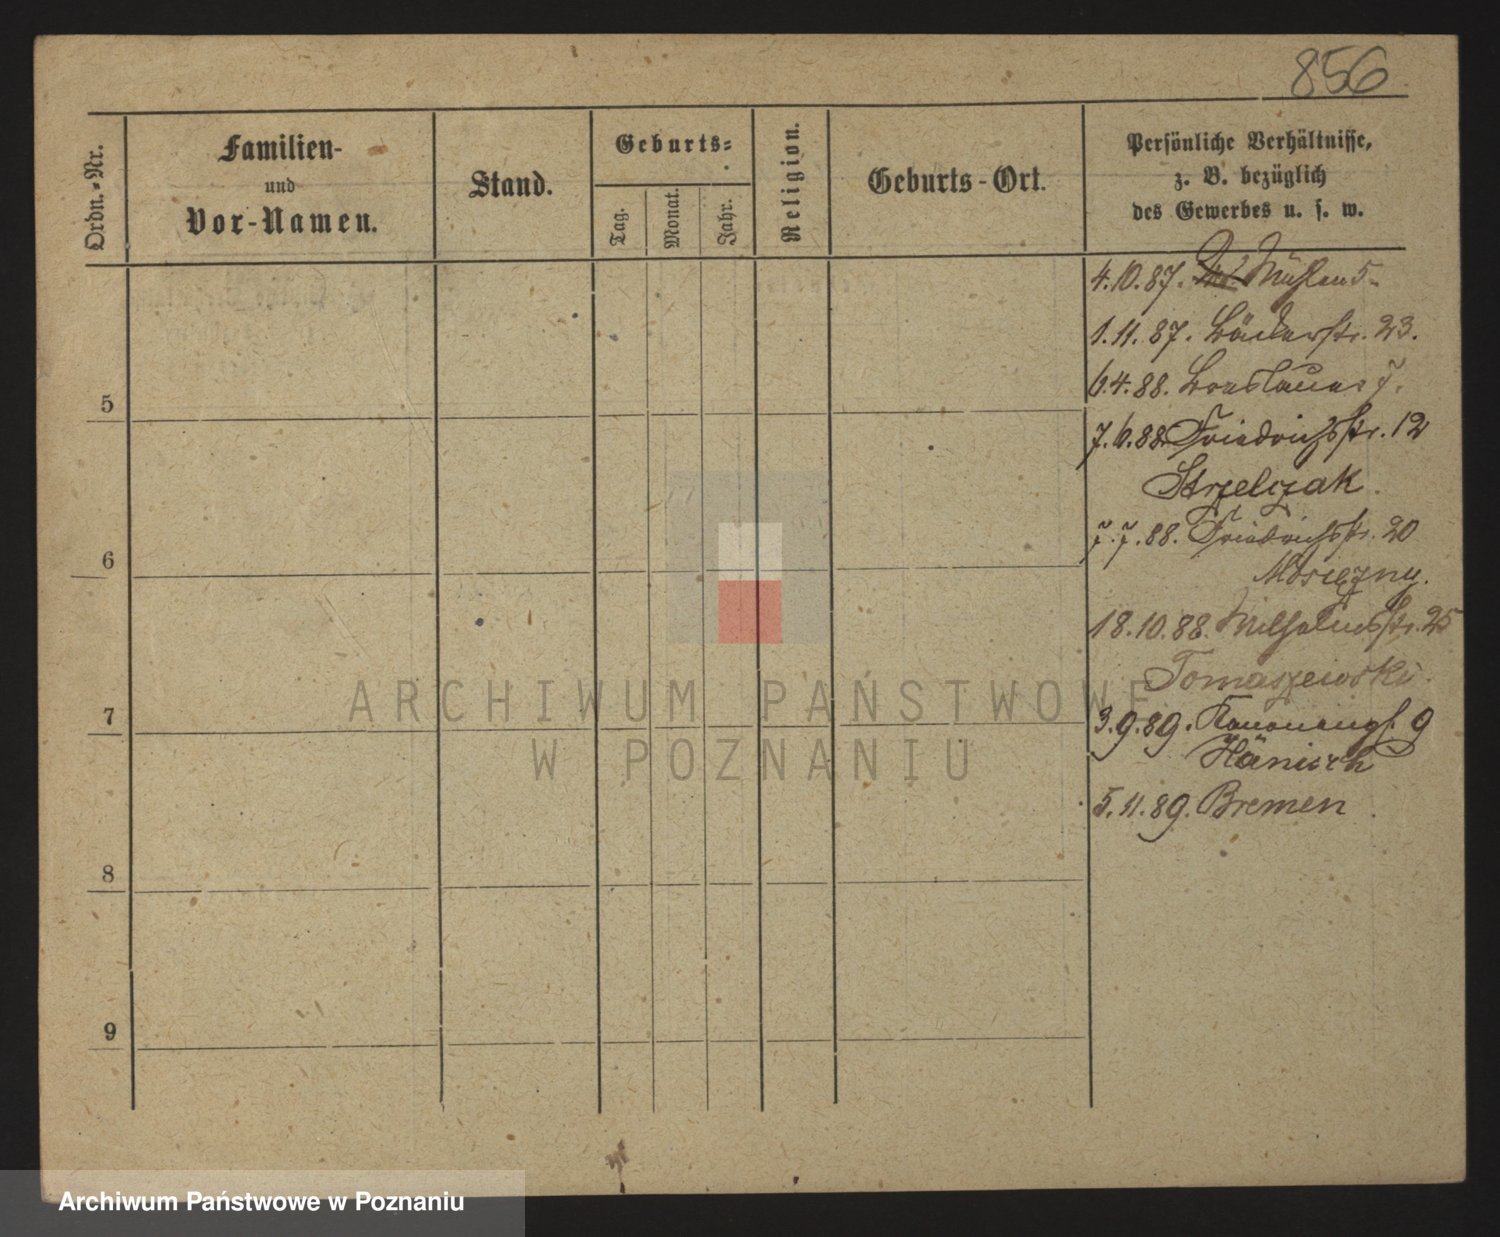 856
Ordn.-Nr.
Familien-
und
Vor-Namen.
Stand.
Geburts-
Tag.
Monat.
Jahr.
Religion.
Geburts-Ort.
Persönliche Verhältnisse,
z. B. bezüglich
des Gewerbes u. s. w.
4.10.87. Mühlen 5.
1.11.87. Bäckerstr. 23.
6.4.88. Breslauer 7.
7.6.88. Friedrichsstr. 12
Strzelczak.
7.7.88. Friedrichsstr. 20
18.10.88. Wilhelmsstr. 25
Tomaszewski.
3.9.89. Kanonengs. 9
Hänisch
5.11.89. Bremen
5
6
7
8
9
ARCHIWUM PAŃSTWOWE
W POZNANIU
Archiwum Państwowe w Poznaniu